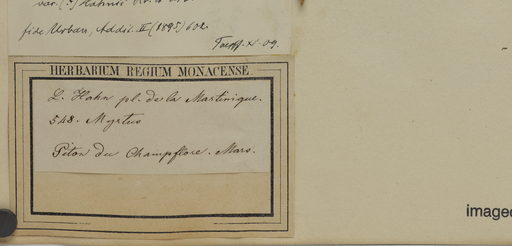 fide Urban, Addit. II (1895) 602.
HERBARIUM REGIUM MONACENSE
L. Hahn pl. de la Martinique.
548. Myrtus
Piton du Champflore. Mars.
imaged